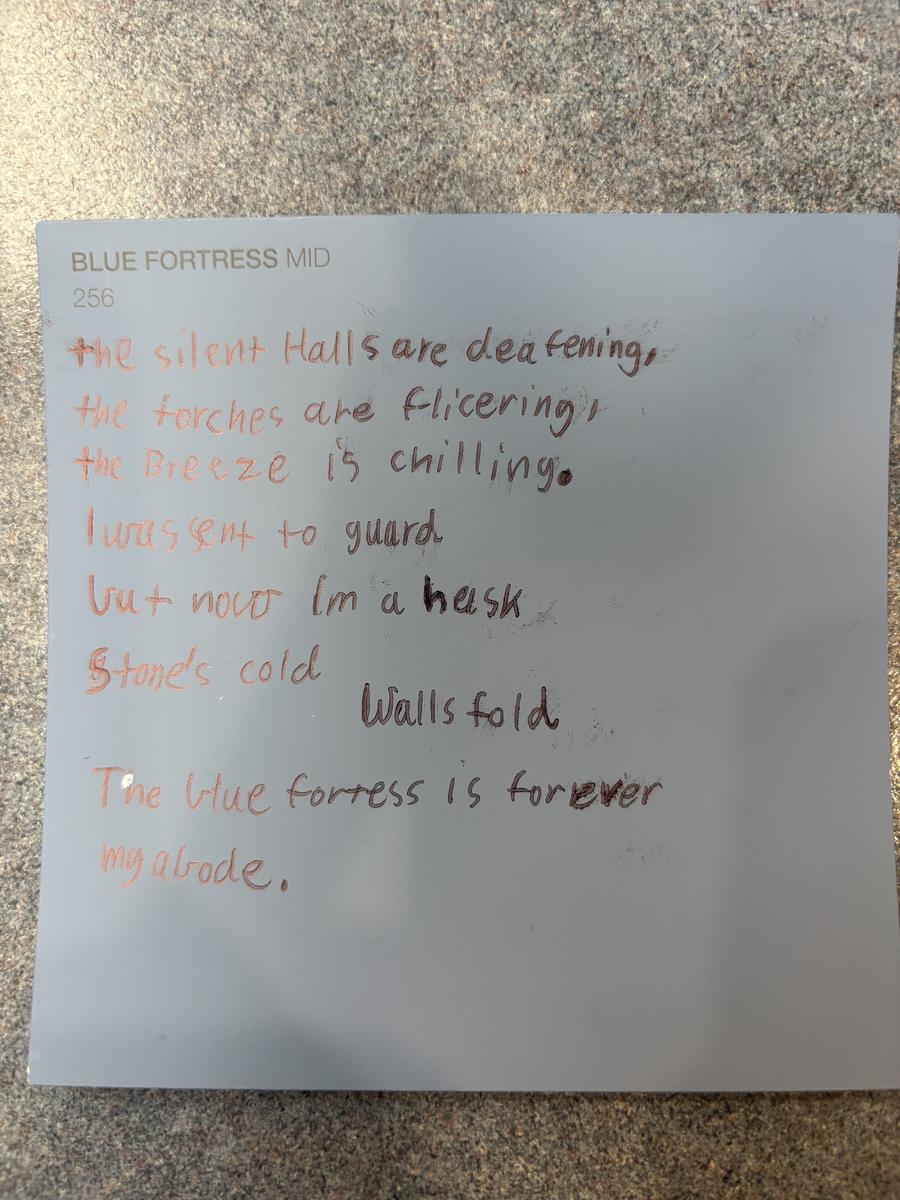 BLUE FORTRESS MID
256
the silent Halls are deafening,
the torches are flicering,
the Breeze is chilling.
I was sent to guard
but now Im a husk
Stone's cold
Walls fold
The blue fortess is forever
my abode.